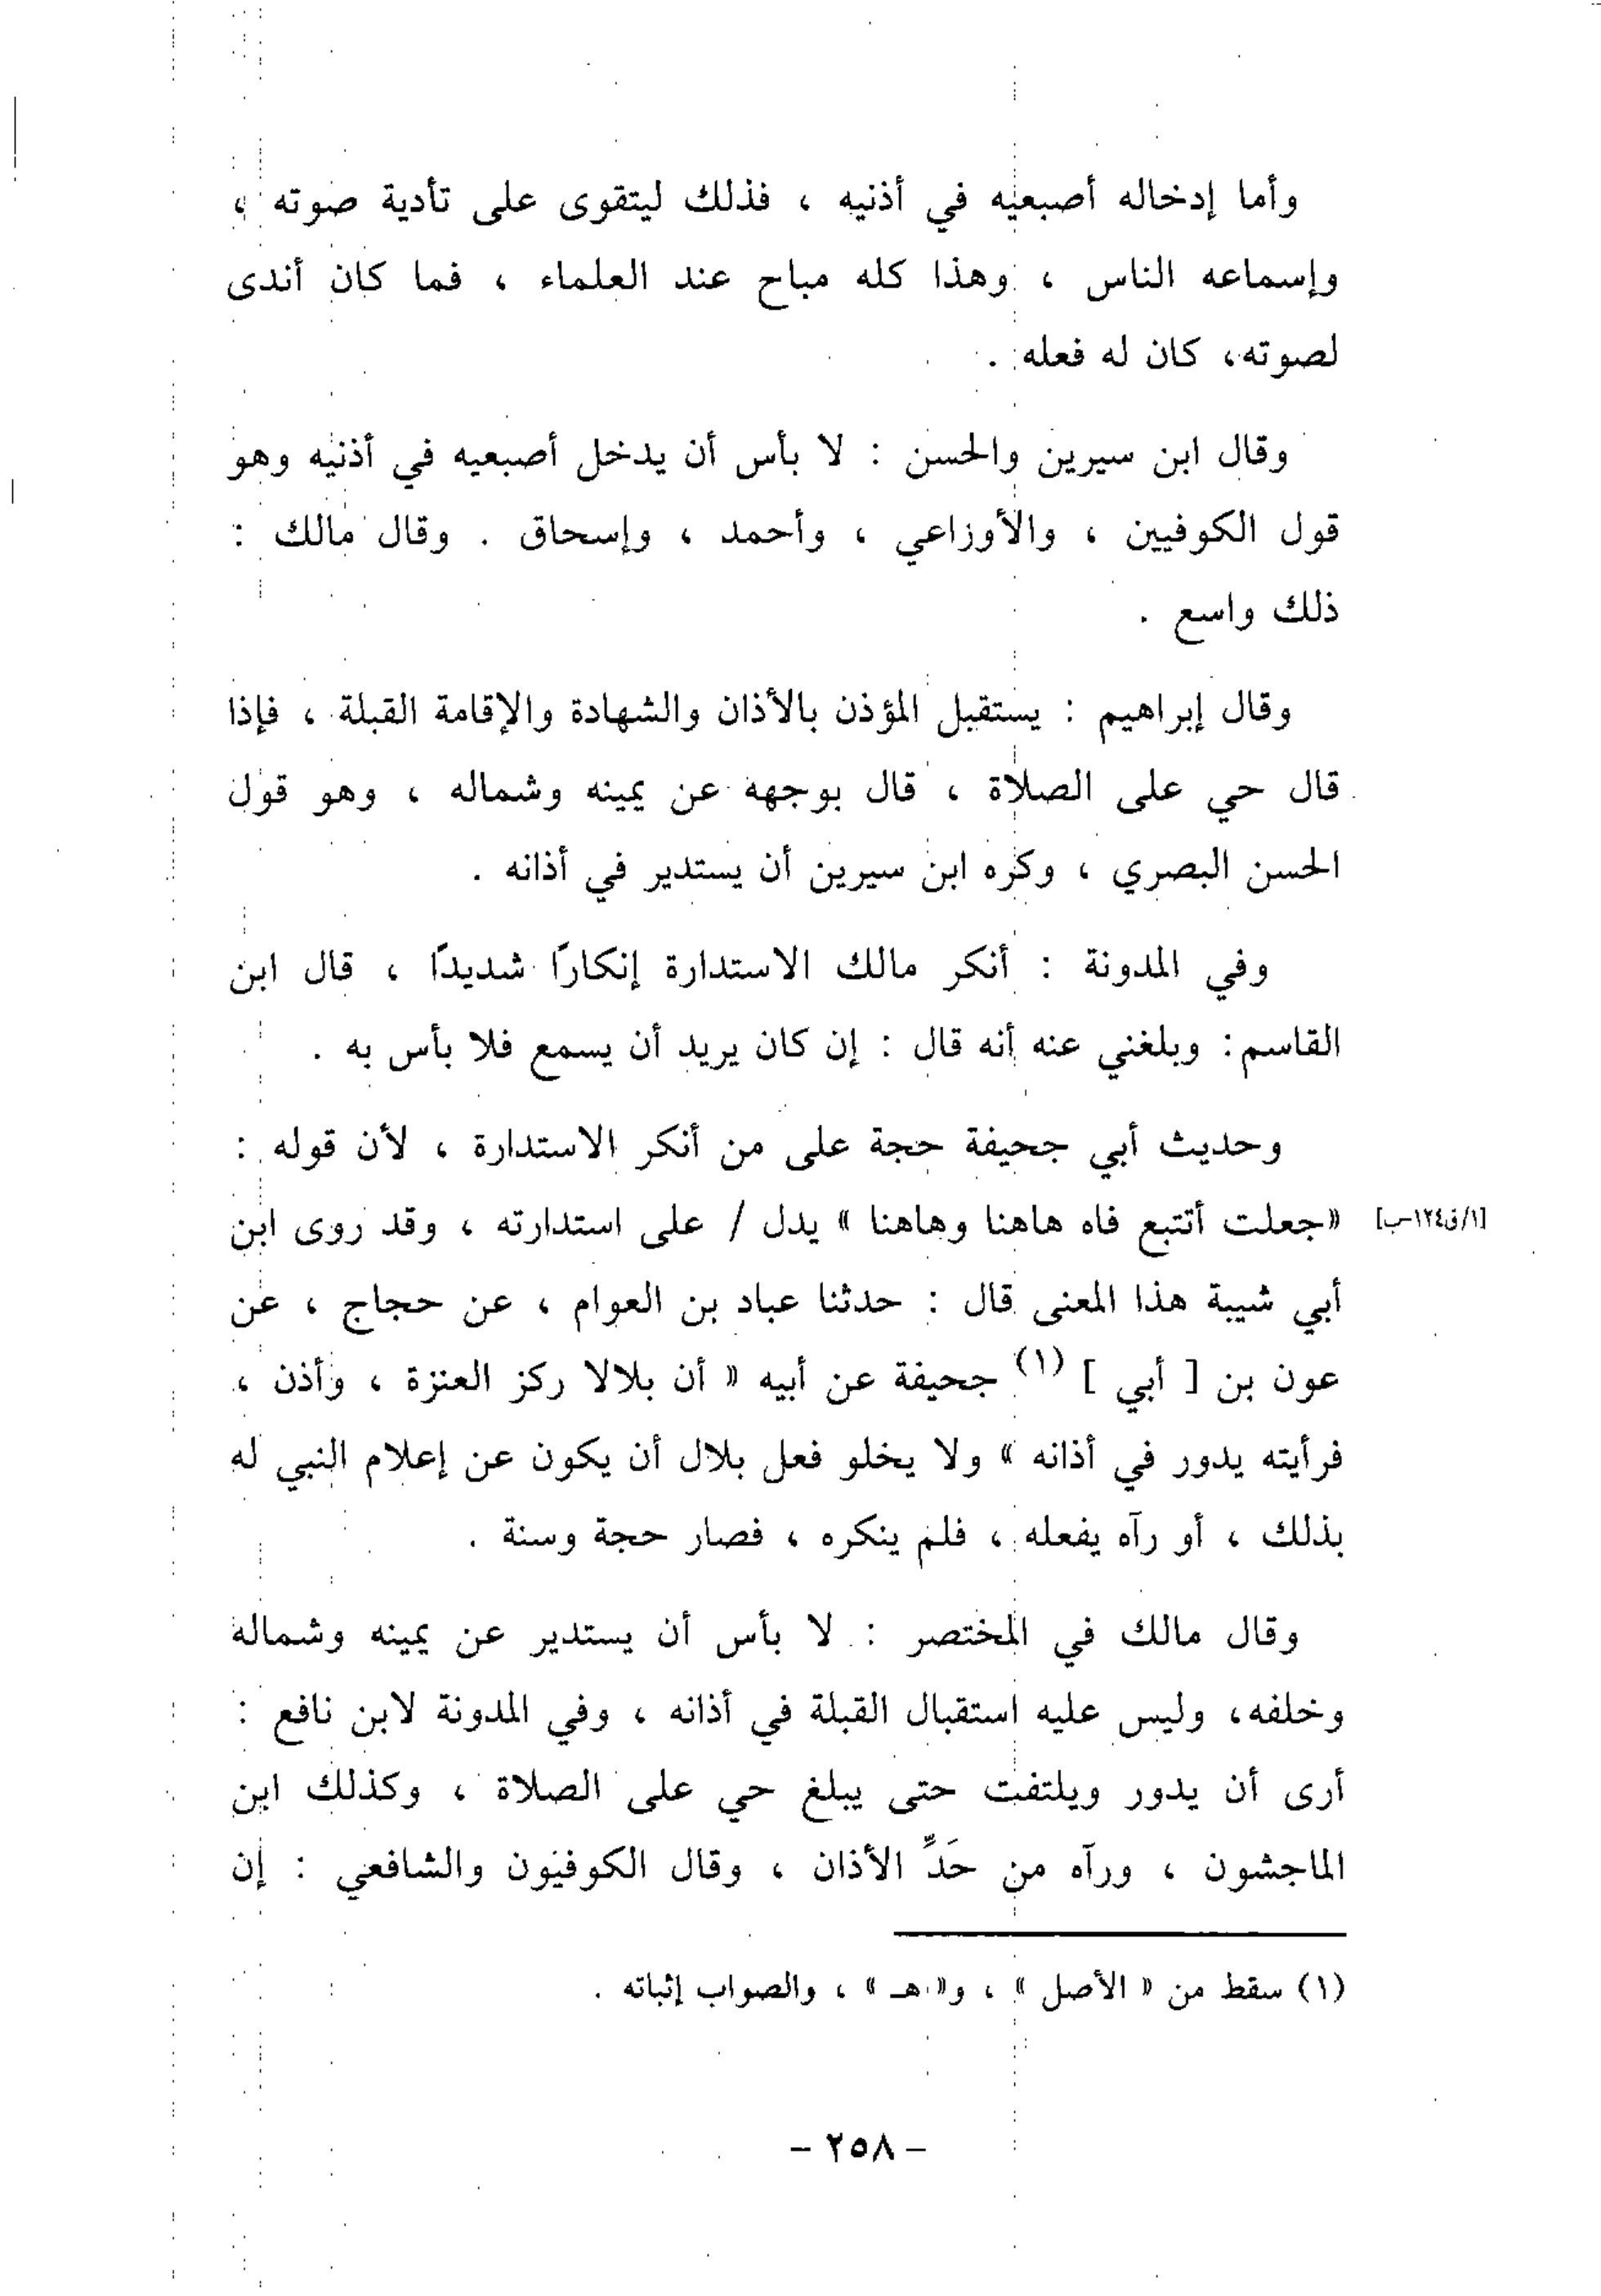 وأما إدخاله أصبعيه في أذنيه ، فذلك ليتقوى على تأدية صوته ،
وإسماعه الناس ، وهذا كله مباح عند العلماء ، فما كان أندى
لصوته، كان له فعله .
وقال ابن سيرين والحسن : لا بأس أن يدخل أصبعيه في أذنيه وهو
قول الكوفيين ، والأوزاعي ، وأحمد ، وإسحاق . وقال مالك :
ذلك واسع .
وقال إبراهيم : يستقبل المؤذن بالأذان والشهادة والإقامة القبلة ، فإذا
قال حي على الصلاة ، قال بوجهه عن يمينه وشماله ، وهو قول
الحسن البصري ، وكره ابن سيرين أن يستدير في أذانه .
وفي المدونة : أنكر مالك الاستدارة إنكارًا شديدًا ، قال ابن
القاسم: وبلغني عنه أنه قال : إن كان يريد أن يسمع فلا بأس به .
وحديث أبي جحيفة حجة على من أنكر الاستدارة ، لأن قوله :
[١/ق١٢٤-ب] «جعلت أتتبع فاه هاهنا وهاهنا» يدل / على استدارته ، وقد روى ابن
أبي شيبة هذا المعنى قال : حدثنا عباد بن العوام ، عن حجاج ، عن
عون بن [ أبي ] (١) جحيفة عن أبيه « أن بلالا ركز العنزة ، وأذن ،
فرأيته يدور في أذانه » ولا يخلو فعل بلال أن يكون عن إعلام النبي له
بذلك ، أو رآه يفعله ، فلم ينكره ، فصار حجة وسنة .
وقال مالك في المختصر : لا بأس أن يستدير عن يمينه وشماله
وخلفه، وليس عليه استقبال القبلة في أذانه ، وفي المدونة لابن نافع :
أرى أن يدور ويلتفت حتى يبلغ حي على الصلاة ، وكذلك ابن
الماجشون ، ورآه من حَدِّ الأذان ، وقال الكوفيون والشافعي : إن
(١) سقط من « الأصل » ، و« هـ » ، والصواب إثباته .
- ٢٥٨ -